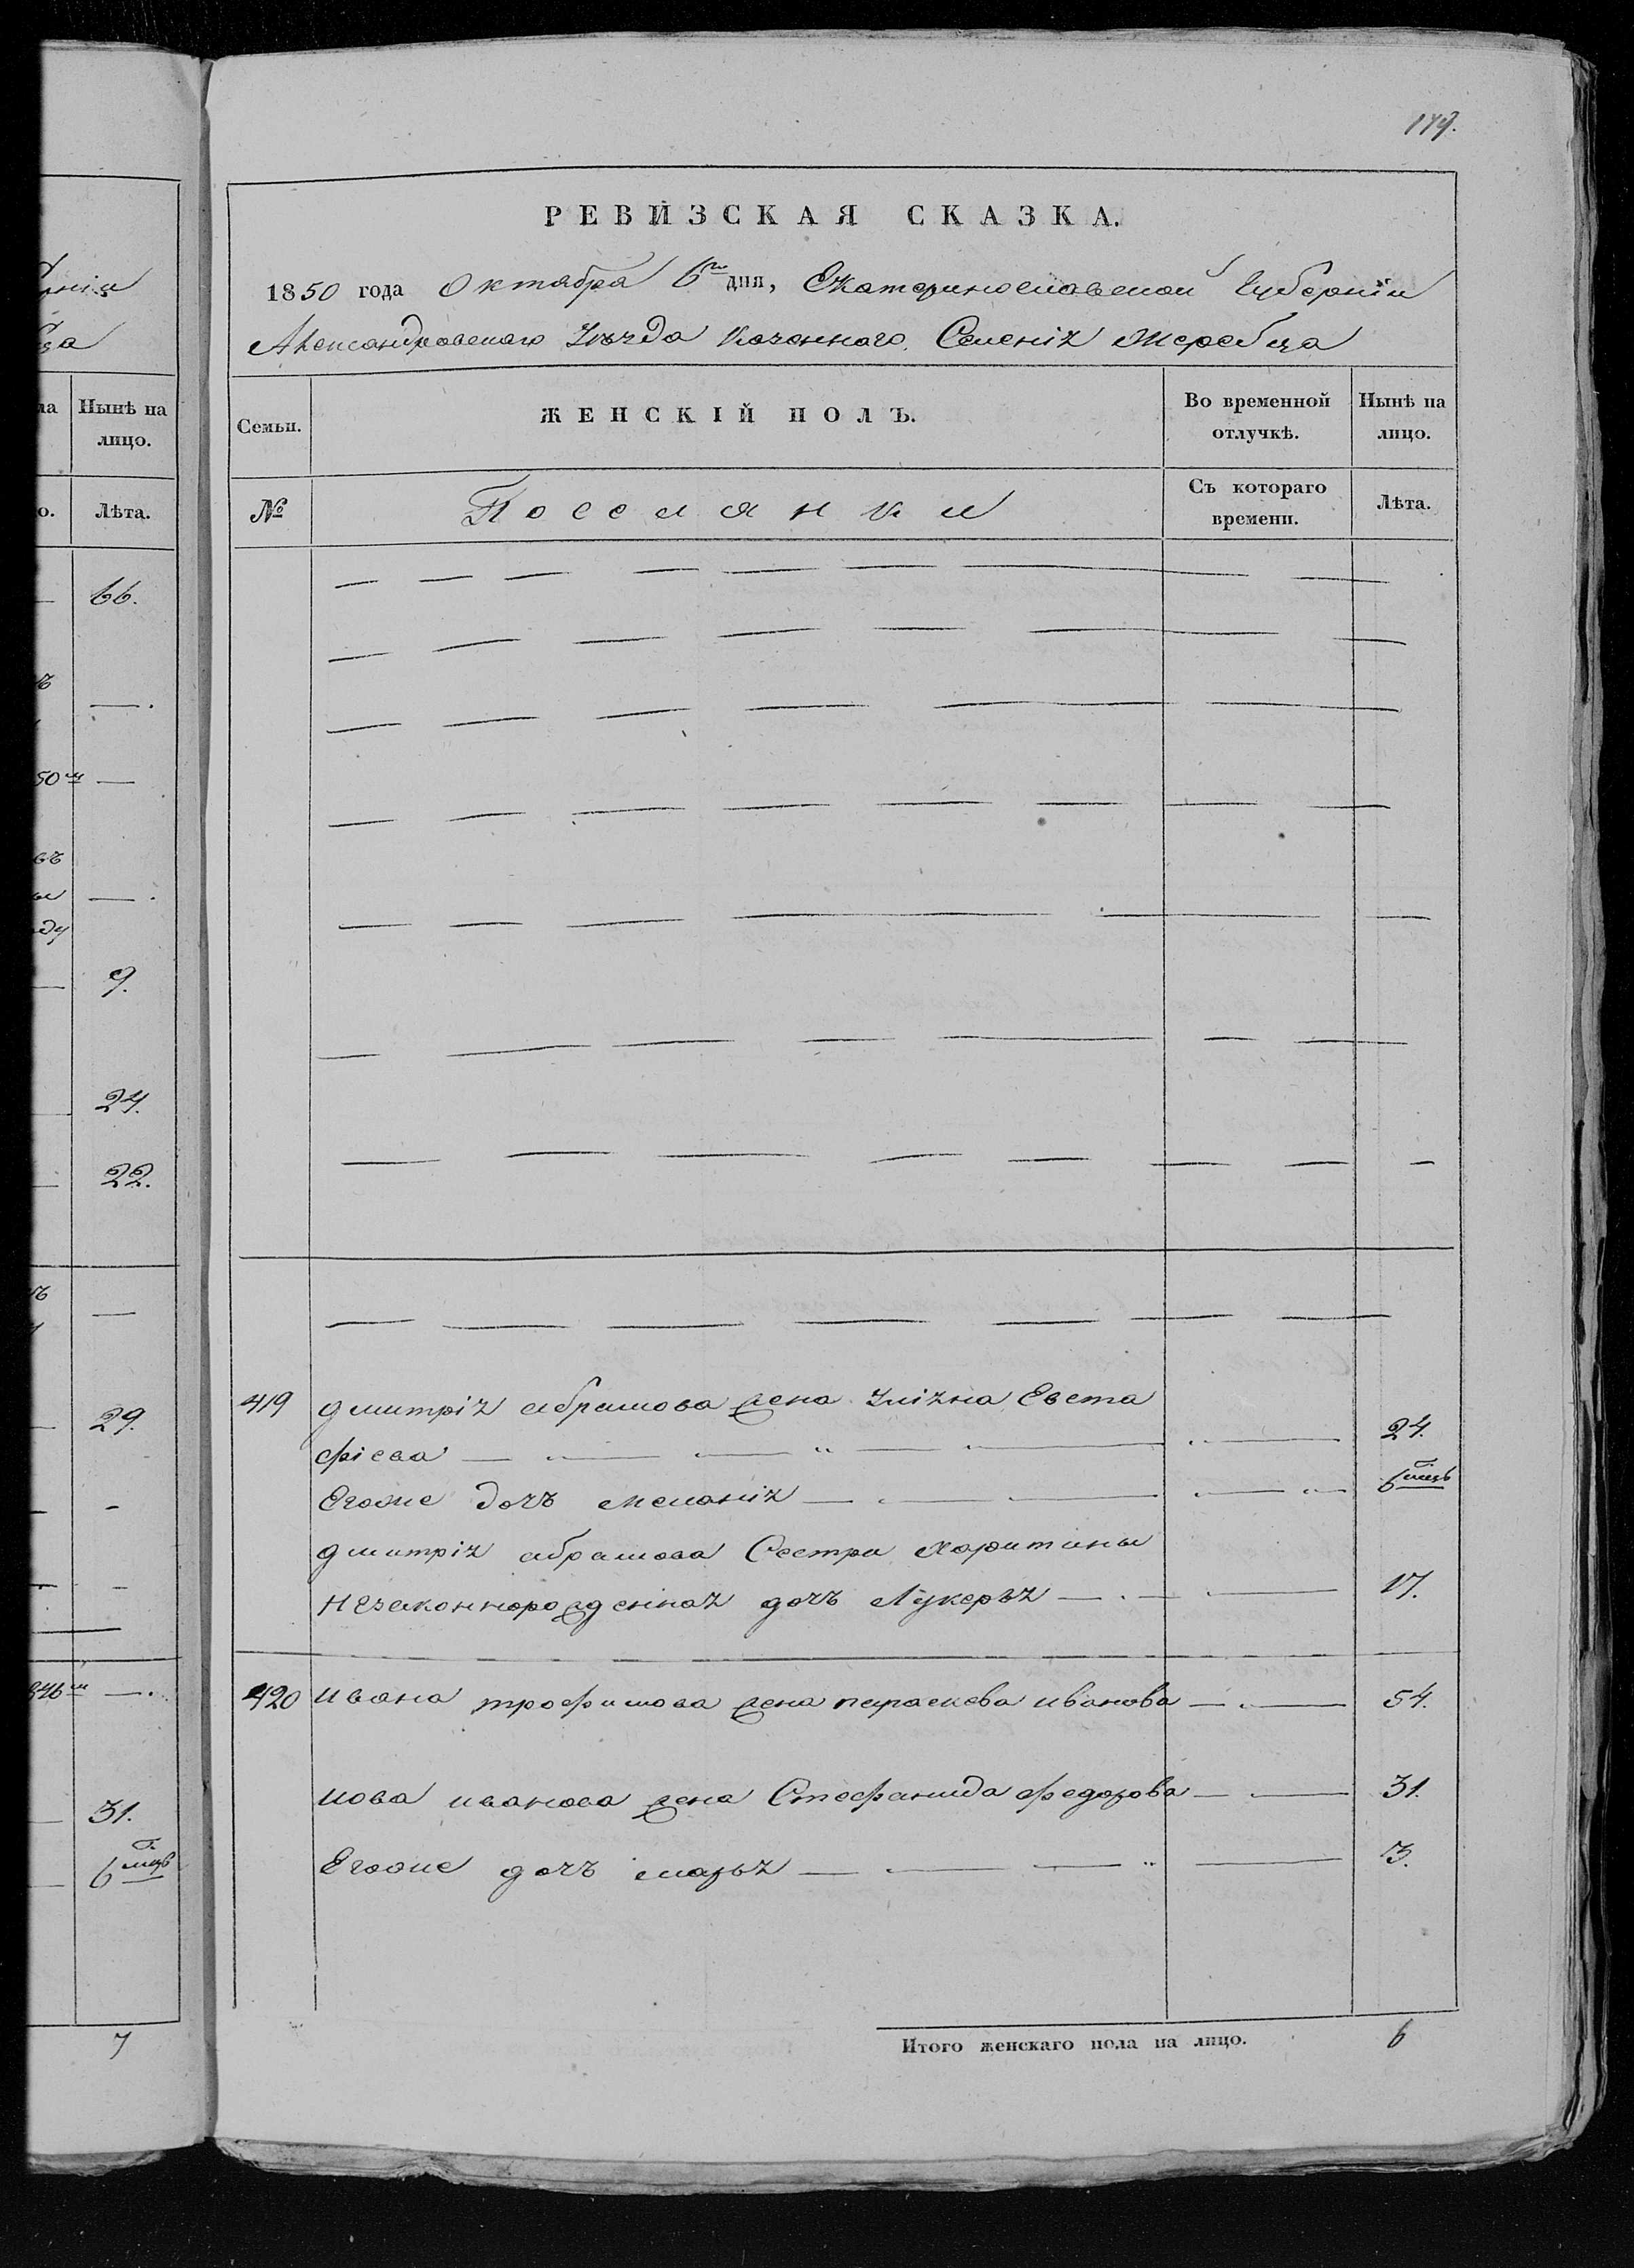 179.
РЕВИЗСКАЯ СКАЗКА.
1850 года Октября 6го дня, Екатеринославской Губерніи
Александровскаго Уѣзда Казеннаго Селенія Жеребца
Нынѣ на
лицо.
Лѣта.
66.
50м
9.
24.
22.
29.
846м
31.
6 мцъ
7
Семьи.
ЖЕНСКІЙ ПОЛЪ.
Во временной
отлучкѣ.
Нынѣ на
лицо.
№
Поселянки
Съ котораго
времени.
Лѣта.
419 дмитрія абрамова жена Уліяна Евста
фіева 24.
Егоже дочь меланія 6 мцъ
дмитрія абрамова Сестри харитины
незаконнорожденная дочь Лукеръя 17.
420 ивана трофимова жена параскева иванова 54.
иова иванова жена Стефанида федорова 31.
Егоже дочь маръя 3.
Итого женскаго пола на лицо. 6